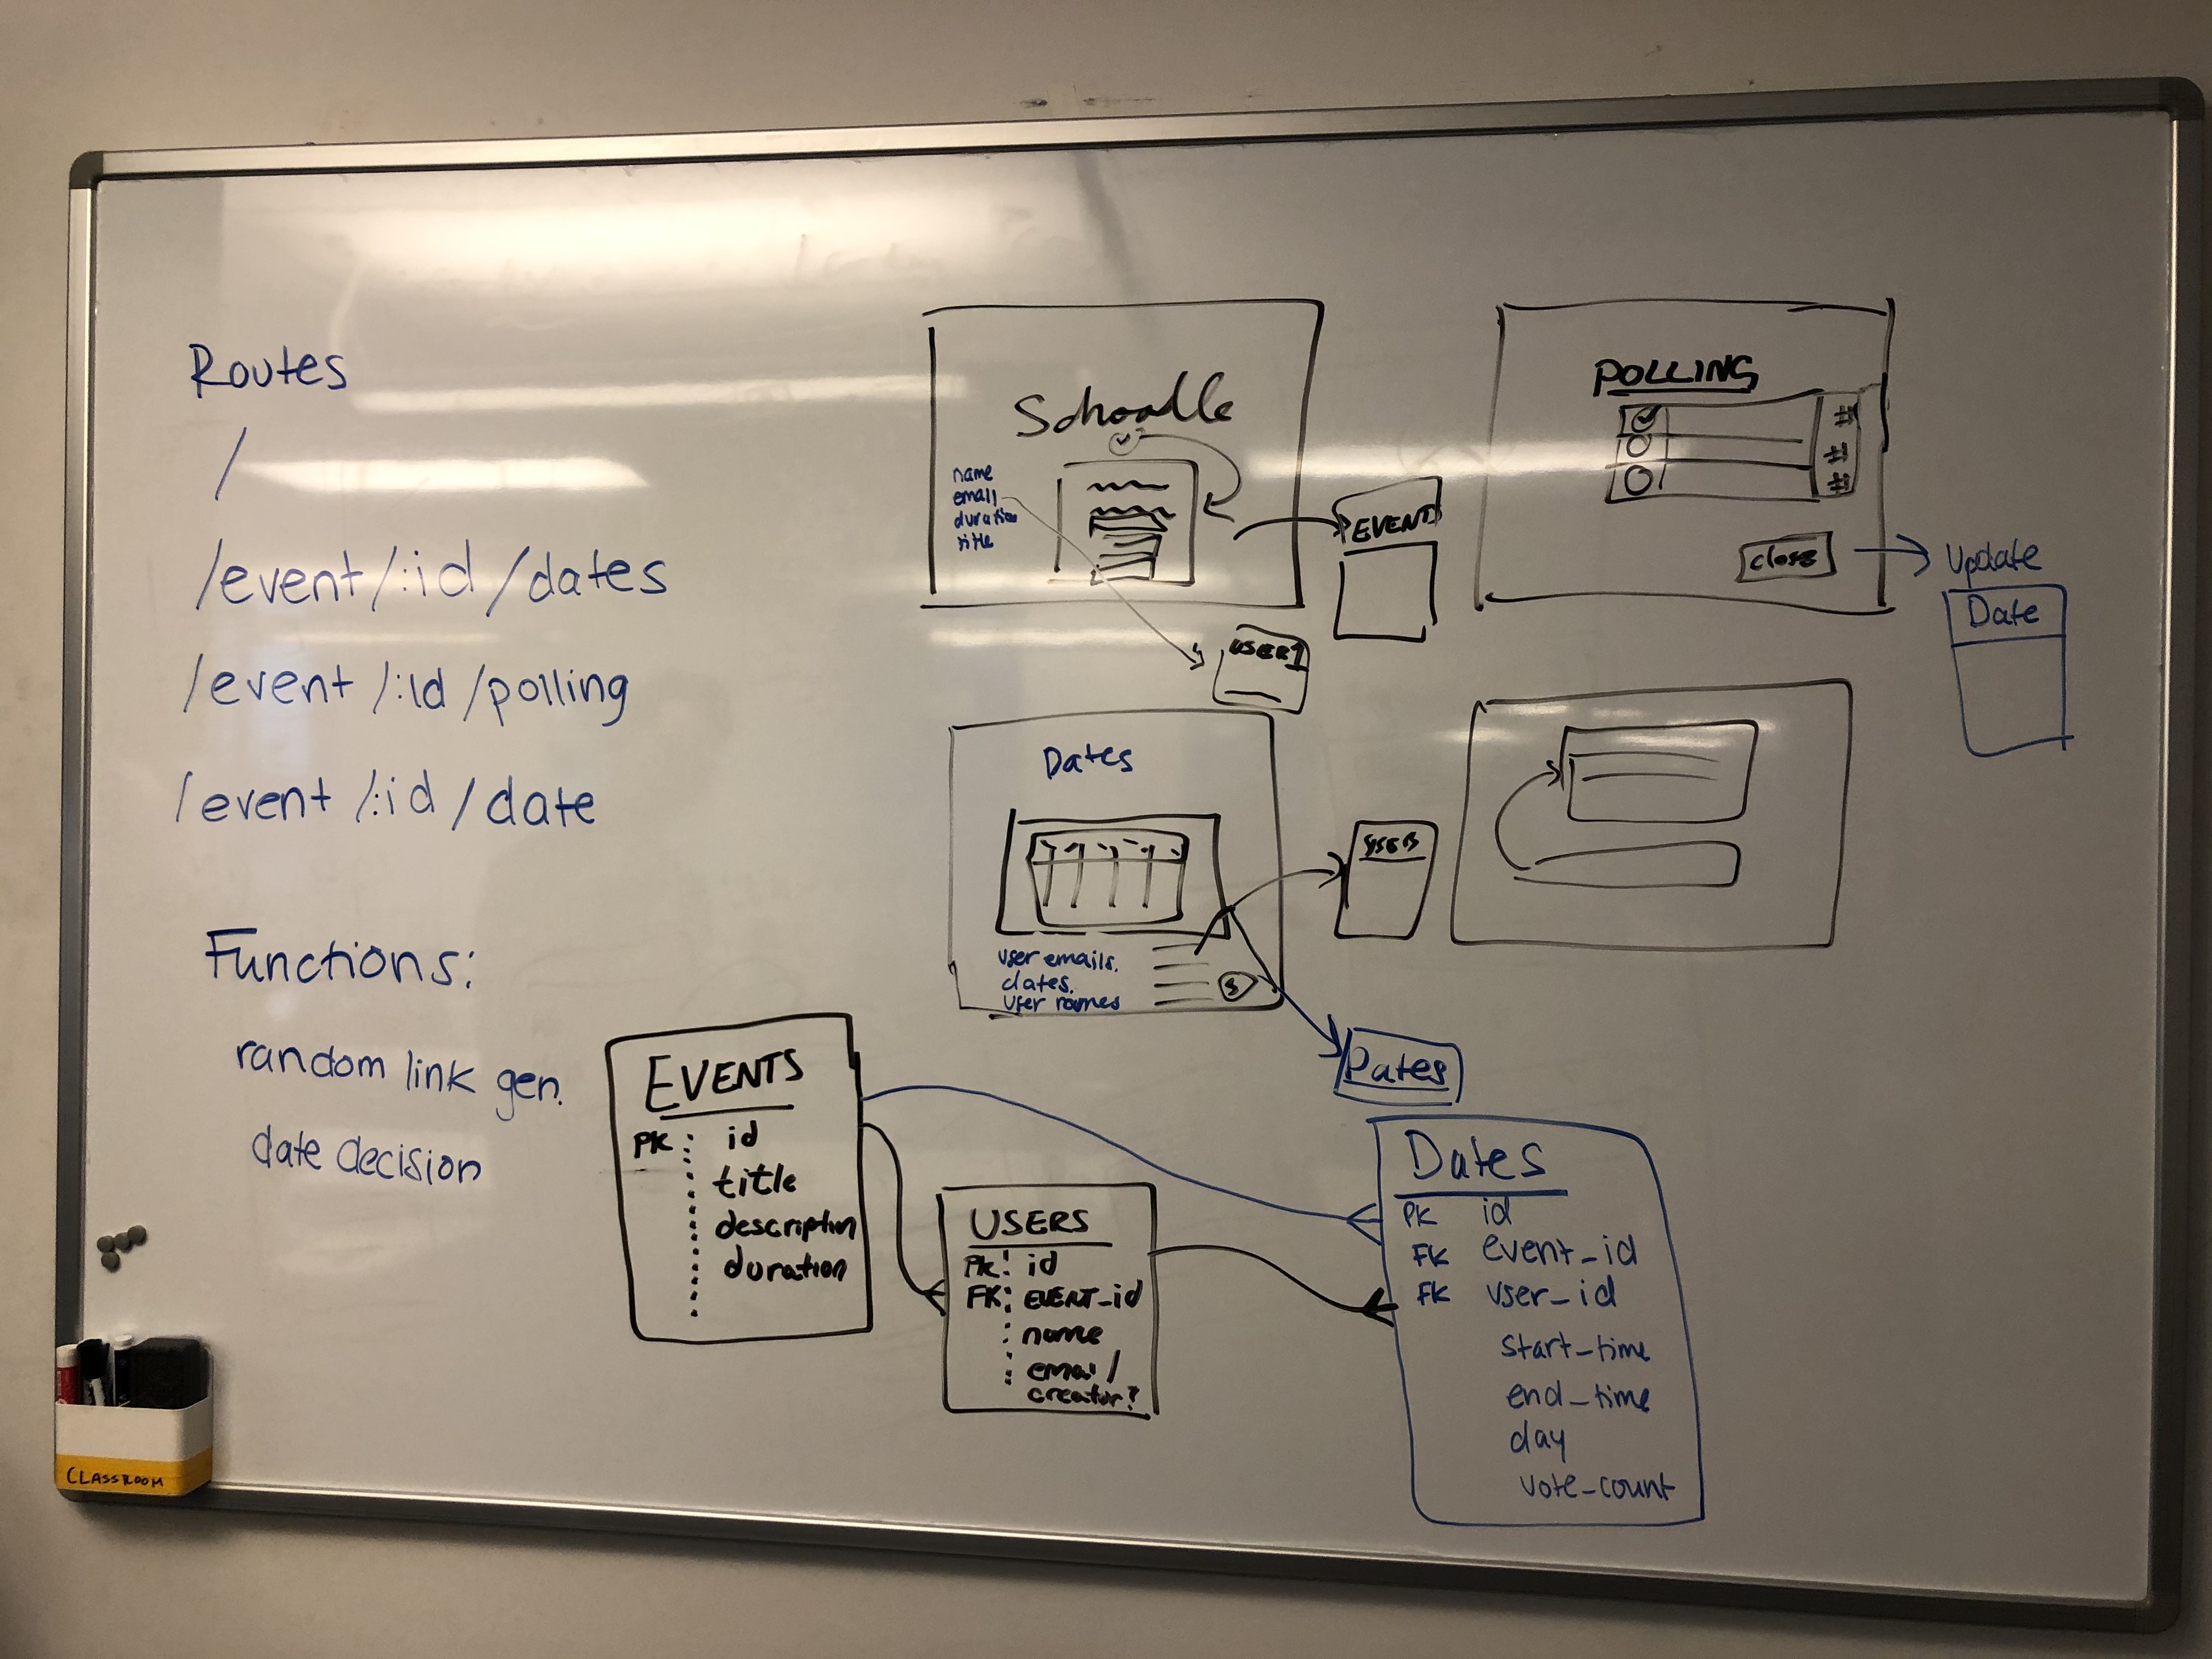 Routes
/
/event/:id/dates
/event/:id/polling
/event/:id/date
Functions:
random link gen.
date decision
Schoodle
name
email
duration
title
EVENT
USER1
POLLING
#
#
#
close
Update
Date
Dates
user emails.
dates.
user names
USER
Dates
EVENTS
PK id
title
descriptin
duration
USERS
PK id
FK EVENT_id
name
email
creator?
Dates
PK id
FK event_id
FK user_id
start_time
end_time
day
vote_count
CLASSROOM